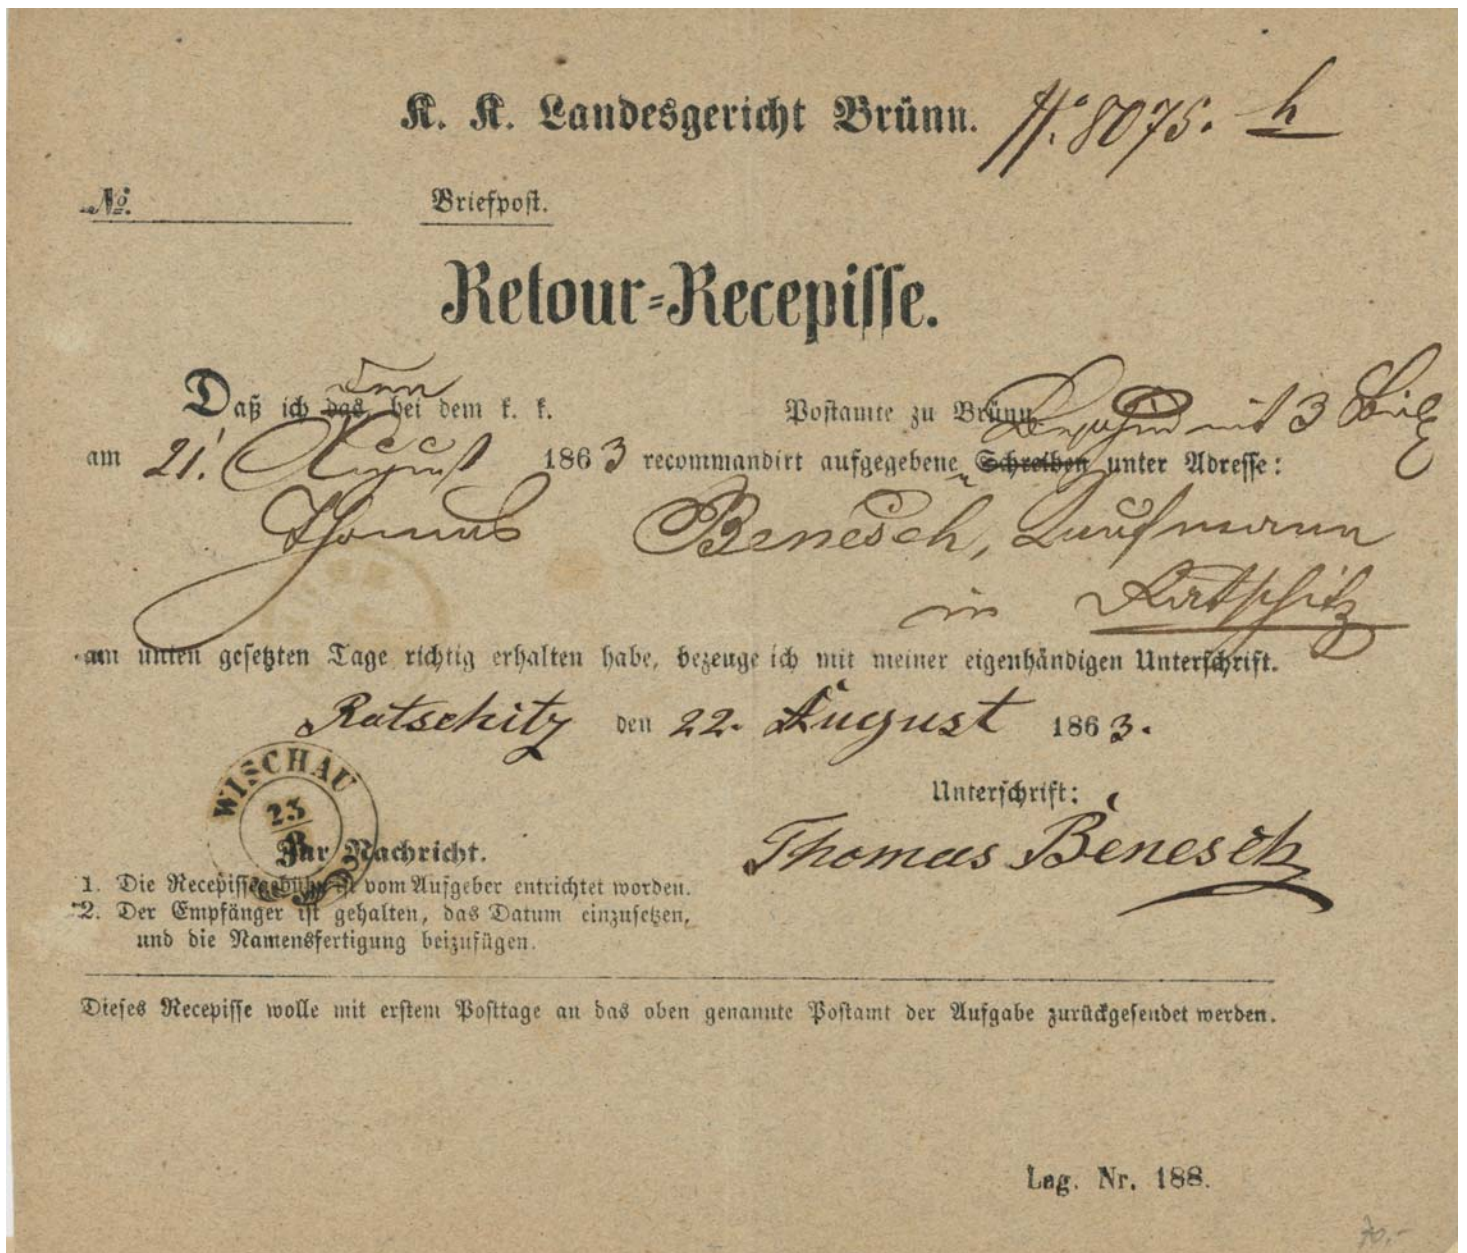 K. K. Landesgericht Brünn. N: 8075. h
No. Briefpost.
Retour-Recepisse.
den
Daß ich das bei dem k. k. Postamte zu Brünn mit 3 
am 21. August 1863 recommandirt aufgegebenen Schreiben unter Adresse:
Thomas Benesch, Kaufmann
in Ratschitz
am unten gesetzten Tage richtig erhalten habe, bezeuge ich mit meiner eigenhändigen Unterschrift.
Ratschitz den 22. August 1863.
WISCHAU
23
8
Unterschrift:
Thomas Benesch
Zur Nachricht.
1. Die Recepissegebühr ist vom Aufgeber entrichtet worden.
2. Der Empfänger ist gehalten, das Datum einzusetzen,
und die Namensfertigung beizufügen.
Dieses Recepisse wolle mit erstem Posttage an das oben genannte Postamt der Aufgabe zurückgesendet werden.
Lag. Nr. 188.
70,-